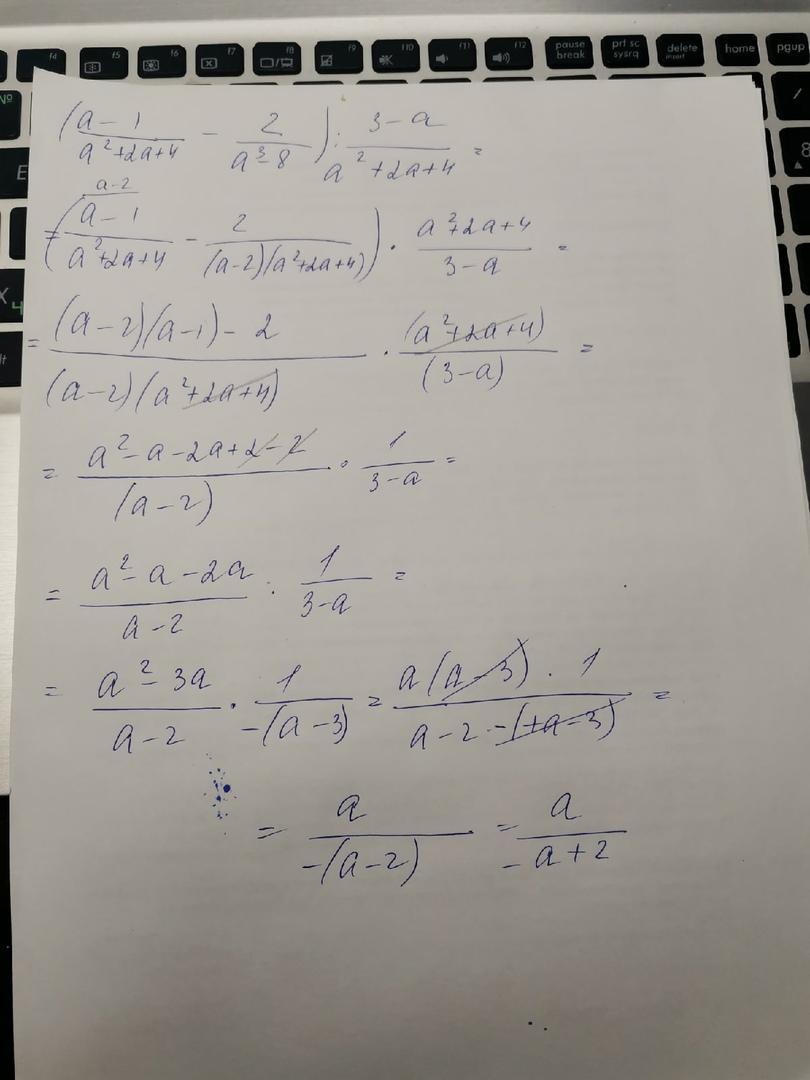 f4 f5 f6 f7 f8 f9 f10 f11 f12 pause break prt sc sysrq delete insert home pgup
(a-1/a²+2a+4 - 2/a³-8) : 3-a/a²+2a+4 =
a-2
=(a-1/a²+2a+4 - 2/(a-2)(a²+2a+4)) · a²+2a+4/3-a =
= (a-2)(a-1)-2/(a-2)(a²+2a+4) · (a²+2a+4)/(3-a) =
= a²-a-2a+2-2/(a-2) · 1/3-a =
= a²-a-2a/a-2 · 1/3-a =
= a²-3a/a-2 · 1/-(a-3) = a(a-3)·1/a-2-(+a-3) =
= a/-(a-2) = a/-a+2